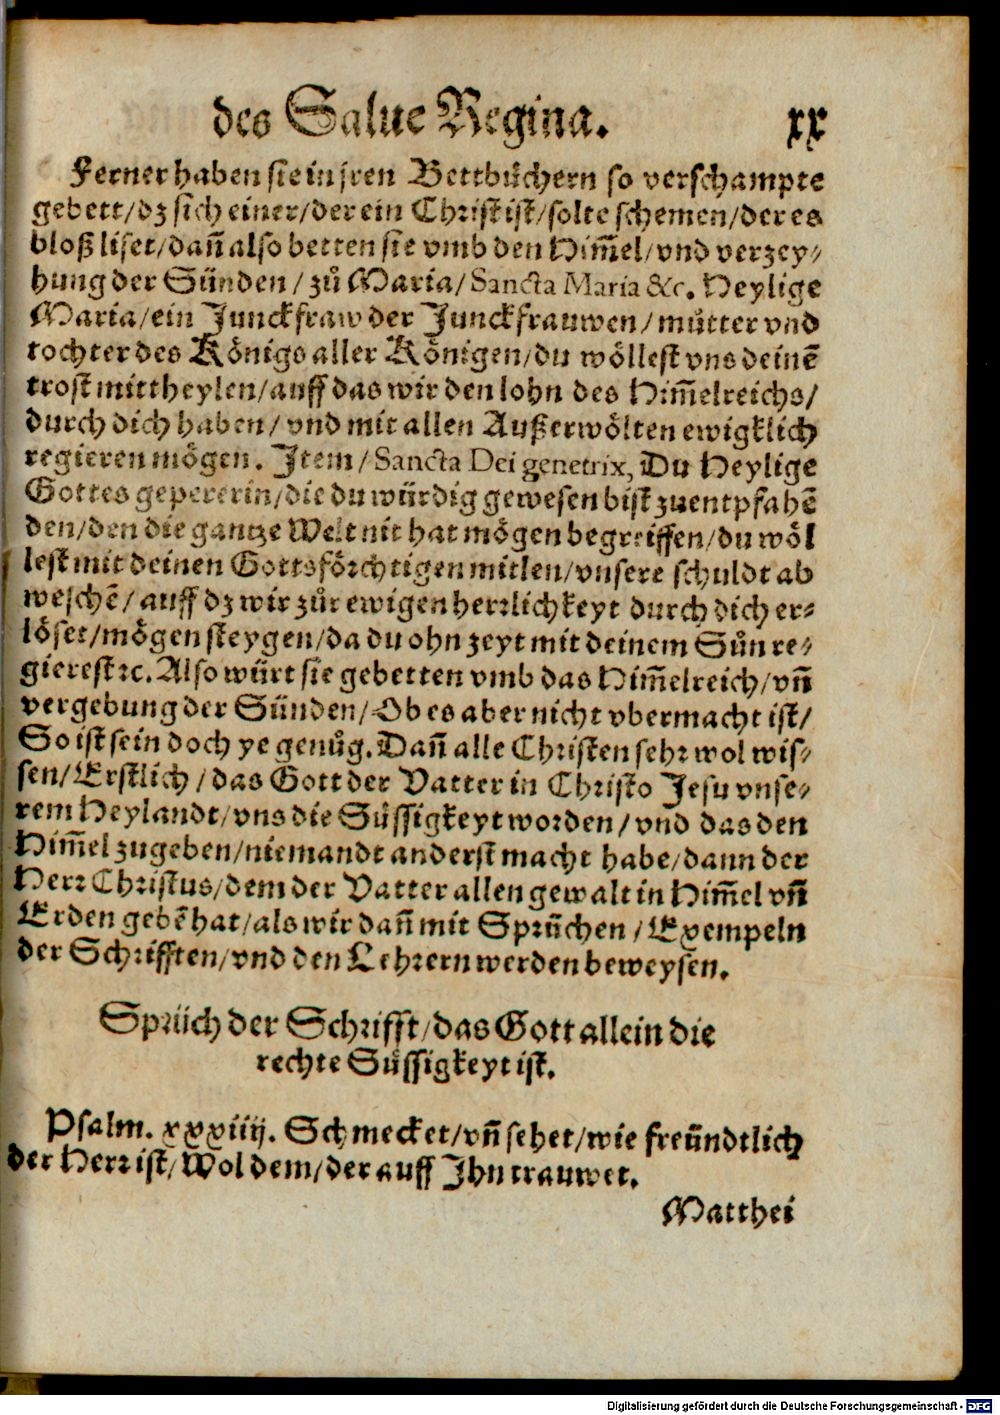 des Salue Regina. xx
Ferner haben sie in jren Bettbůchern so verschampte
gebett/dz sich einer/der ein Christ ist/solte schemen/der es
bloß liset/dañ also betten sie vmb den Him̃el/vnd verzey-
hung der Sünden/zů Maria/Sancta Maria &c. Heylige
Maria/ein Junckfraw der Junckfrauwen/můtter vnd
tochter des Königs aller Königen/du wöllest vns deinẽ
trost mittheylen/auff das wir den lohn des Him̃elreichs/
durch dich haben/vnd mit allen Außerwölten ewigklich
regieren mögen. Item/Sancta Dei genetrix, Du Heylige
Gottes gepererin/die du würdig gewesen bist zuentpfahẽ
den/den die gantze Welt nit hat mögen begreiffen/du wöl
lest mit deinen Gottsförchtigen mitlen/vnsere schuldt ab
weschẽ/auff dz wir zůr ewigen herrlichkeyt durch dich er-
löset/mögen steygen/da du ohn zeyt mit deinem Sůn re-
gierest ꝛc. Also würt sie gebetten vmb das Him̃elreich/vñ
vergebung der Sünden/Ob es aber nicht vbermacht ist/
So ist sein doch ye genůg. Dañ alle Christen sehr wol wis-
sen/Erstlich/das Gott der Vatter in Christo Jesu vnse-
rem Heylandt/vns die Süssigkeyt worden/vnd das den
Him̃el zugeben/niemandt anderst macht habe/dann der
Herr Christus/dem der Vatter allen gewalt in Him̃el vñ
Erden gebẽ hat/als wir dañ mit Sprüchen/Exempeln
der Schrifften/vnd den Lehrern werden beweysen.
Sprüch der Schrifft/das Gott allein die
rechte Süssigkeyt ist.
Psalm. xxxiiij. Schmecket/vñ sehet/wie freündtlich
der Herr ist/Wol dem/der auff Jhn trauwet.
Matthei
Digitalisierung gefördert durch die Deutsche Forschungsgemeinschaft - DFG